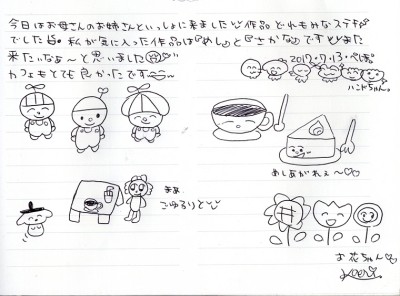 今日はお母さんのお姉さんといっしょに来ました 作品どれもみなステキ
でした 私が気に入った作品は『めし』と『さかな』です また
来たいなぁ〜と思いました
カフェもとても良かったです
2017.9.13.べぽ。
ハンドちゃん。
めしあがれぇ〜
まぁ
ごゆるりと
お花ちゃん